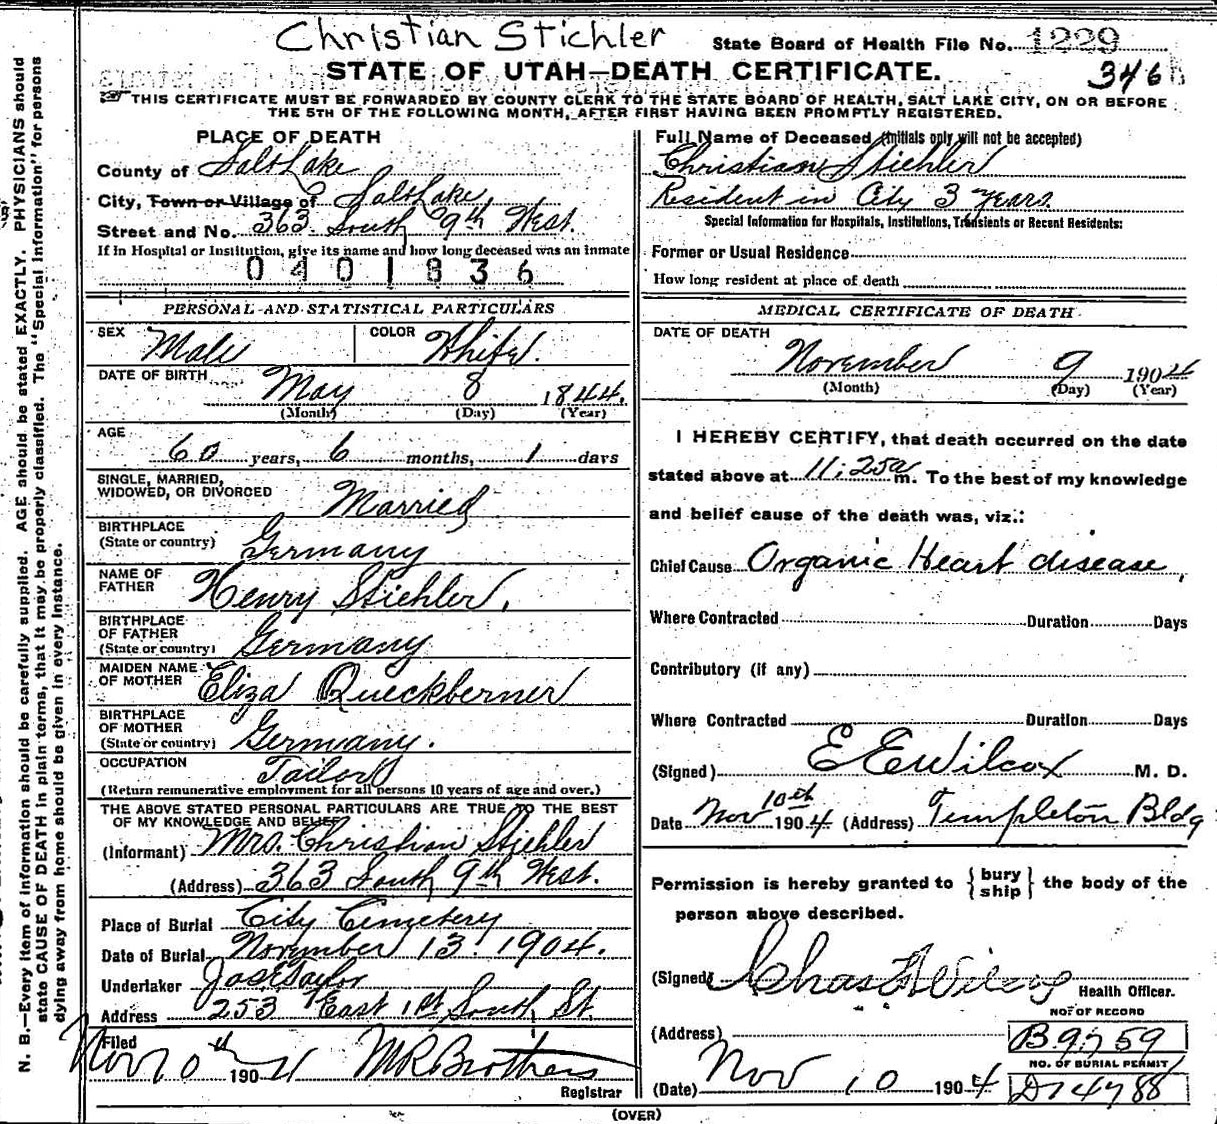 Christian Stichler
State Board of Health File No. 1229
346
STATE OF UTAH—DEATH CERTIFICATE.
THIS CERTIFICATE MUST BE FORWARDED BY COUNTY CLERK TO THE STATE BOARD OF HEALTH, SALT LAKE CITY, ON OR BEFORE
THE 5TH OF THE FOLLOWING MONTH, AFTER FIRST HAVING BEEN PROMPTLY REGISTERED.
N. B.—Every item of information should be carefully supplied. AGE should be stated EXACTLY. PHYSICIANS should
state CAUSE OF DEATH in plain terms, that it may be properly classified. The "Special Information" for persons
dying away from home should be given in every instance.
PLACE OF DEATH
County of Salt Lake
City, Town or Village of Salt Lake
Street and No. 363 South 9th West.
If in Hospital or Institution, give its name and how long deceased was an inmate
0401836
PERSONAL AND STATISTICAL PARTICULARS
SEX Male COLOR White.
DATE OF BIRTH May 8 1844.
(Month) (Day) (Year)
AGE
60 years, 6 months, 1 days
SINGLE, MARRIED,
WIDOWED, OR DIVORCED Married
BIRTHPLACE
(State or country) Germany
NAME OF
FATHER Henry Stichler.
BIRTHPLACE
OF FATHER
(State or country) Germany
MAIDEN NAME
OF MOTHER Eliza Queckberner
BIRTHPLACE
OF MOTHER
(State or country) Germany.
OCCUPATION Tailor
(Return remunerative employment for all persons 10 years of age and over.)
THE ABOVE STATED PERSONAL PARTICULARS ARE TRUE TO THE BEST
OF MY KNOWLEDGE AND BELIEF
(Informant) Mrs. Christian Stichler
(Address) 363 South 9th West.
Place of Burial City Cemetery
Date of Burial November 13 1904.
Undertaker Jos E Taylor
Address 253 East 1st South St.
Filed
Nov 10th 1904 M R Brothers
Registrar
Full Name of Deceased (Initials only will not be accepted)
Christian Stichler
Resident in City 3 years.
Special Information for Hospitals, Institutions, Transients or Recent Residents:
Former or Usual Residence
How long resident at place of death
MEDICAL CERTIFICATE OF DEATH
DATE OF DEATH
November 9 1904
(Month) (Day) (Year)
I HEREBY CERTIFY, that death occurred on the date
stated above at 11:25a m. To the best of my knowledge
and belief cause of the death was, viz.:
Chief Cause Organic Heart disease,
Where Contracted Duration Days
Contributory (if any)
Where Contracted Duration Days
(Signed) E E Wilcox M. D.
Date Nov 10th 1904 (Address) Templeton Bldg
Permission is hereby granted to {bury
ship} the body of the
person above described.
(Signed) Chas
Health Officer.
(Address)
NO. OF RECORD
B9759
(Date) Nov 10 1904
NO. OF BURIAL PERMIT
D14788
(OVER)